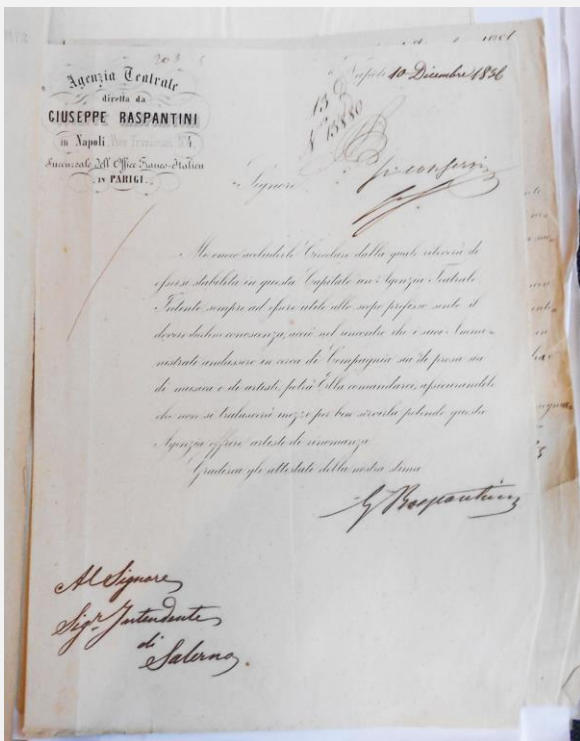 Agenzia Teatrale
diretta da
GIUSEPPE RASPANTINI
in Napoli
Succursale dell'Office Franco-Italien
IN PARIGI.
Napoli 10 Dicembre 1856
13 D
N 15880
Signore
Mi onoro accluderle Circolare dalla quale rileverà di
essersi stabilita in questa Capitale un'Agenzia Teatrale
Intenta sempre ad essere utile allo scopo prefisso sento il
dovere darlene conoscenza, acciò nel incontro che i suoi Ammi=
nistrati andassero in cerca di Compagnia sia di prosa sia
di musica e di artisti, potrà Ella comandarci, assicurandola
che non si tralascerà mezzo per ben servirla potendo questa
Agenzia offrire artisti di rinomanza
Gradisca gli attestati della nostra stima
G Raspantini
Al Signore
Sigr Intendente
di
Salerno.